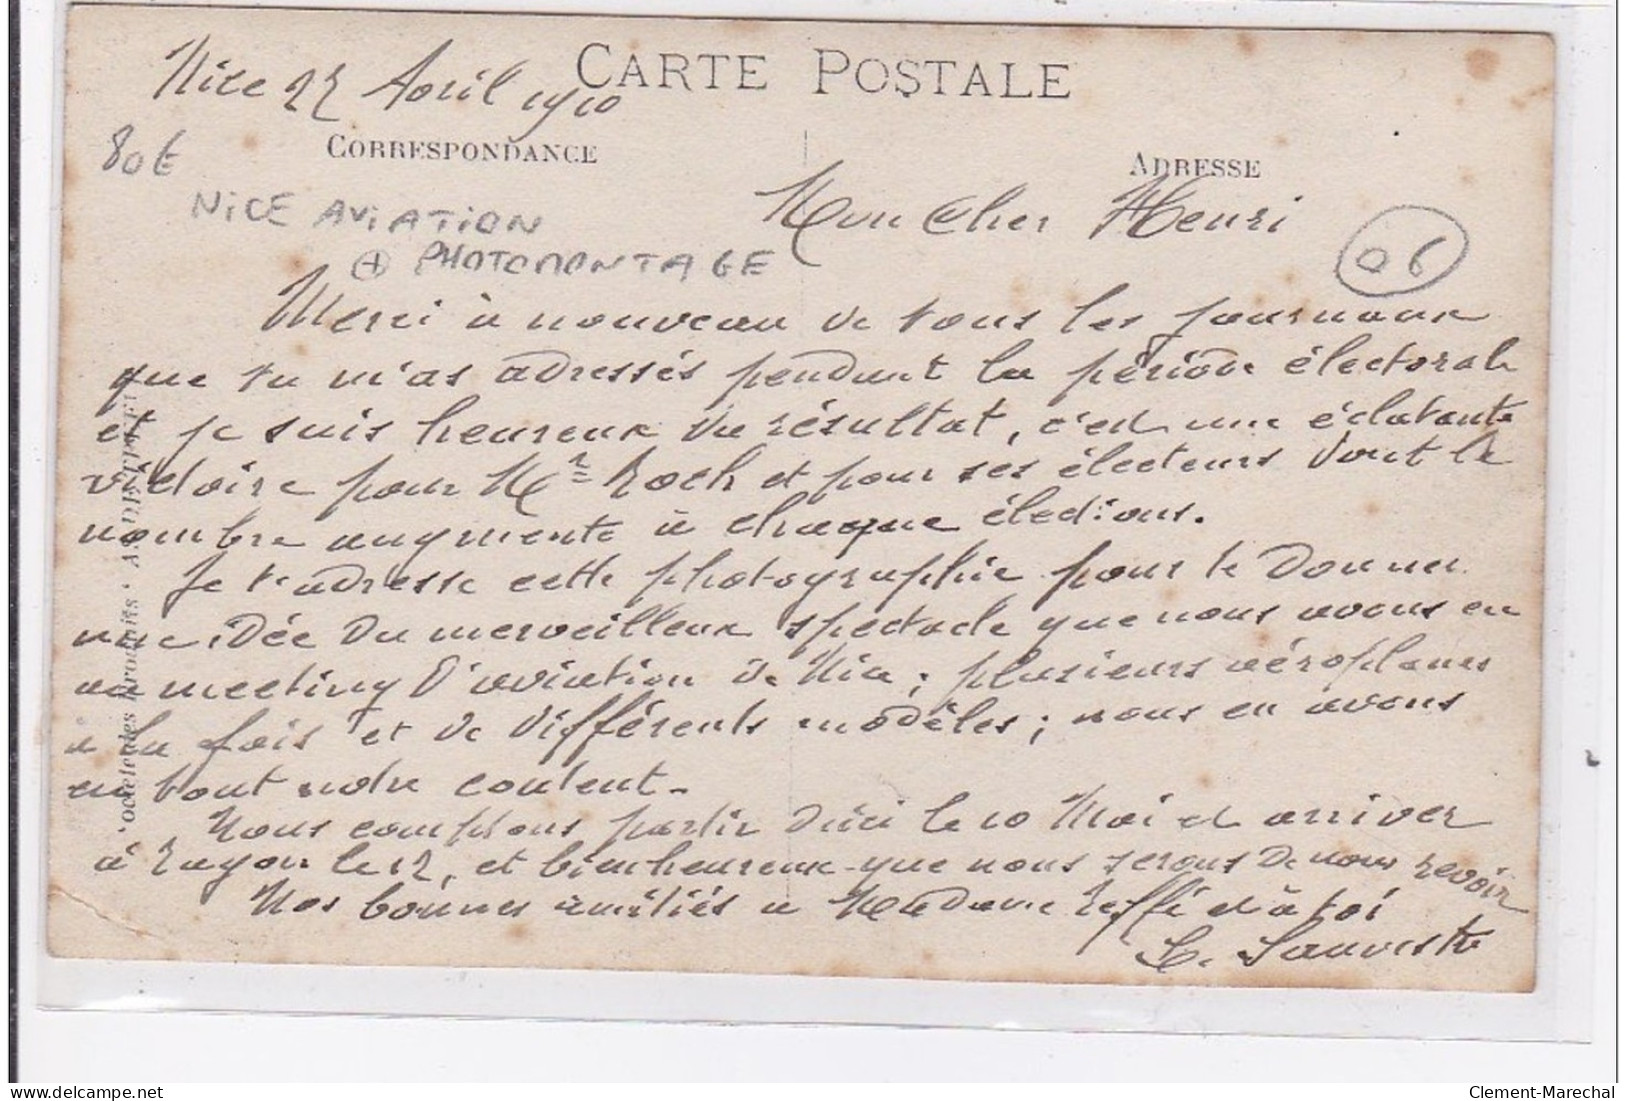 CARTE POSTALE
Nice 22 Avril 1910
CORRESPONDANCE
ADRESSE
80 €
NICE AVIATION
+ PHOTOMONTAGE
06
Mon Cher Henri
Merci à nouveau de tous les journaux
que tu m'as adressés pendant la période électorale
et je suis heureux du résultat, c'est une éclatante
victoire pour Mr Roch et pour ses électeurs dont le
nombre augmente à chaque élections.
Je t'adresse cette photographie pour te donner
une idée du merveilleux spectacle que nous avons eu
au meeting d'aviation de Nice ; plusieurs aéroplanes
à la fois et de différents modèles ; nous en avons
eu tout notre content.
Nous comptons partir d'ici le 10 Mai et arriver
à le 12, et bienheureux que nous serons de nous revoir
Nos bonnes amitiés à Madame et à toi
Sauvestre
Clement-Marechal